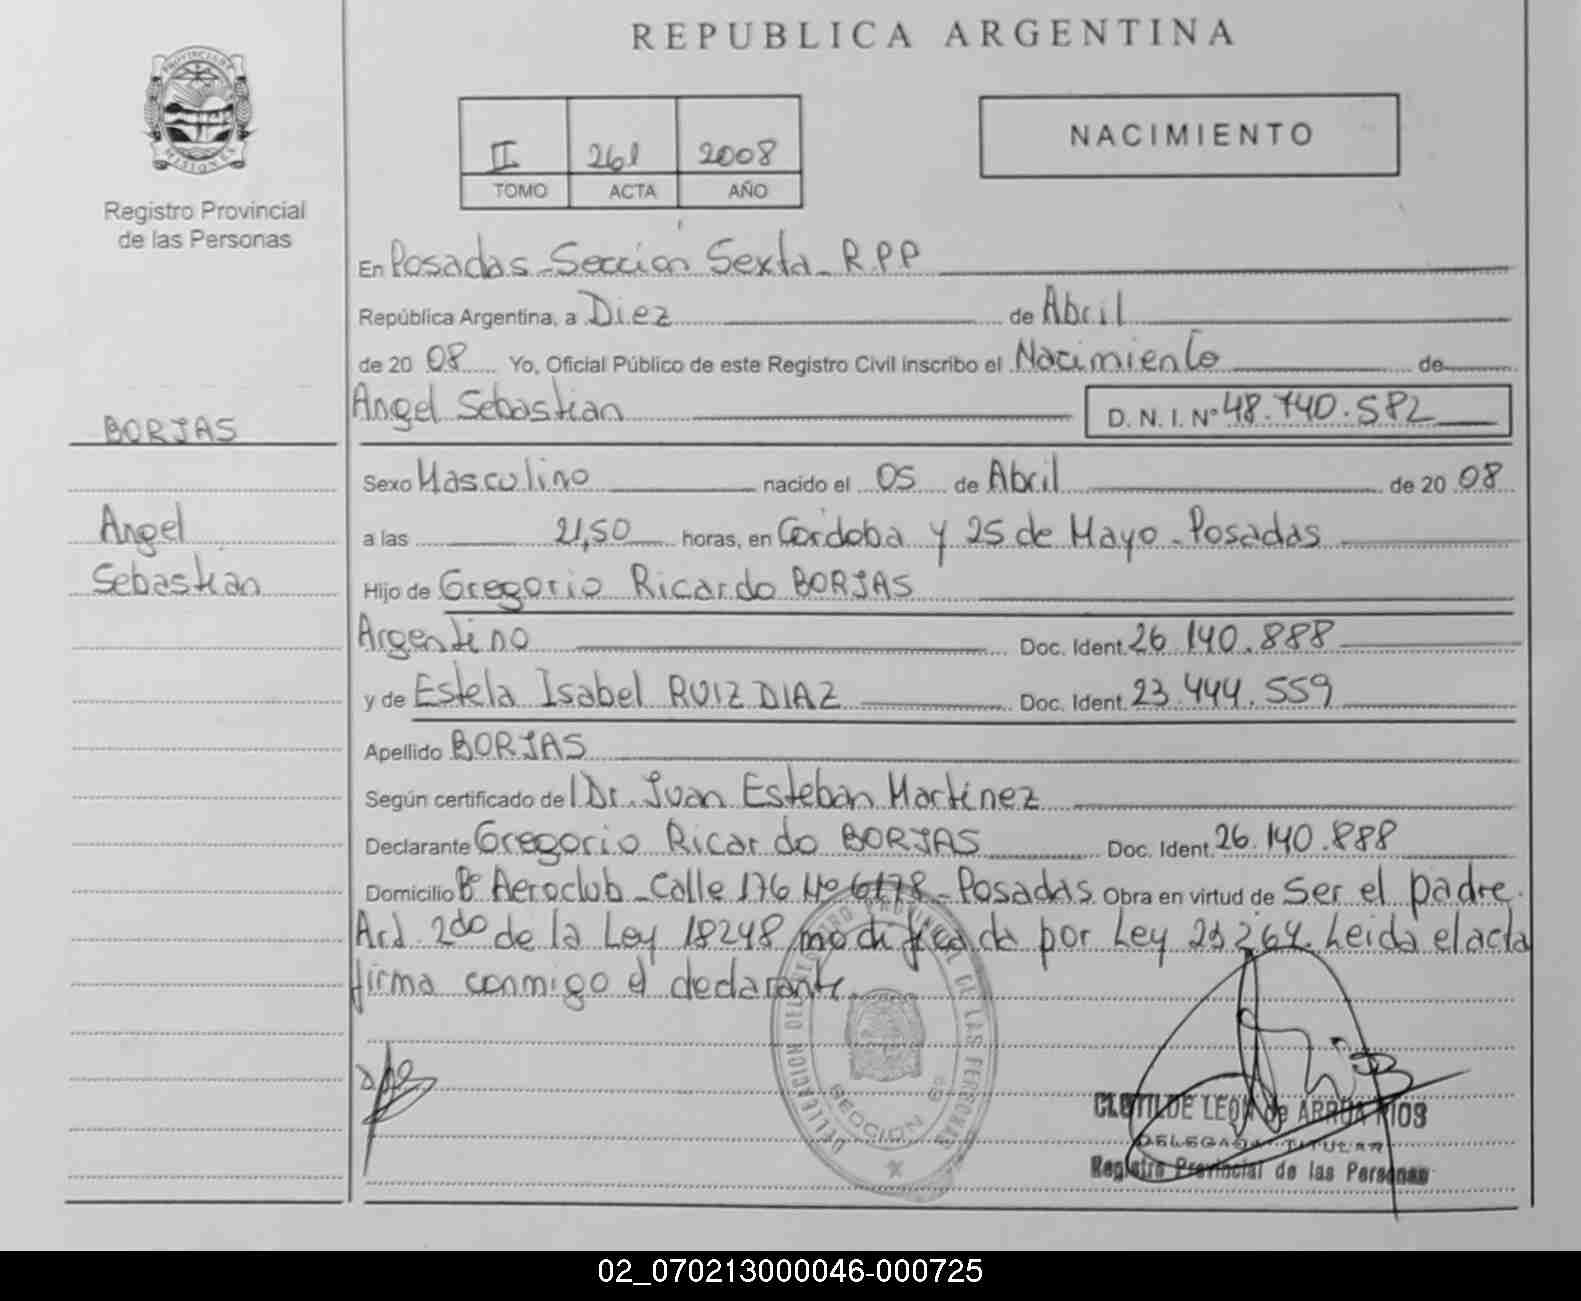 REPUBLICA ARGENTINA
PROVINCIA DE MISIONES
Registro Provincial
de las Personas
II 261 2008
TOMO ACTA AÑO
NACIMIENTO
En Posadas - Sección Sexta - R.P.P
República Argentina, a Diez de Abril
de 20 08 Yo, Oficial Público de este Registro Civil inscribo el Nacimiento de
Angel Sebastian D. N. I. Nº 48.740.582
BORJAS
Angel
Sebastian
Sexo Masculino nacido el 05 de Abril de 20 08
a las 21,50 horas, en Córdoba y 25 de Mayo - Posadas
Hijo de Gregorio Ricardo BORJAS
Argentino Doc. Ident. 26.140.888
y de Estela Isabel RUIZ DIAZ Doc. Ident. 23.444.559
Apellido BORJAS
Según certificado del Dr. Juan Esteban Martinez
Declarante Gregorio Ricardo BORJAS Doc. Ident. 26.140.888
Domicilio Bº Aeroclub - Calle 176 Nº 6178 - Posadas Obra en virtud de Ser el padre.
Art. 2do de la Ley 18248 modificada por Ley 23264. Leida el acta
firma conmigo el declarante.
DELEGACION REGISTRO PROVINCIAL DE LAS PERSONAS
SECCION 6ª
CLOTILDE LEON de ARRUA RIOS
DELEGADA TITULAR
Registro Provincial de las Personas
02_070213000046-000725